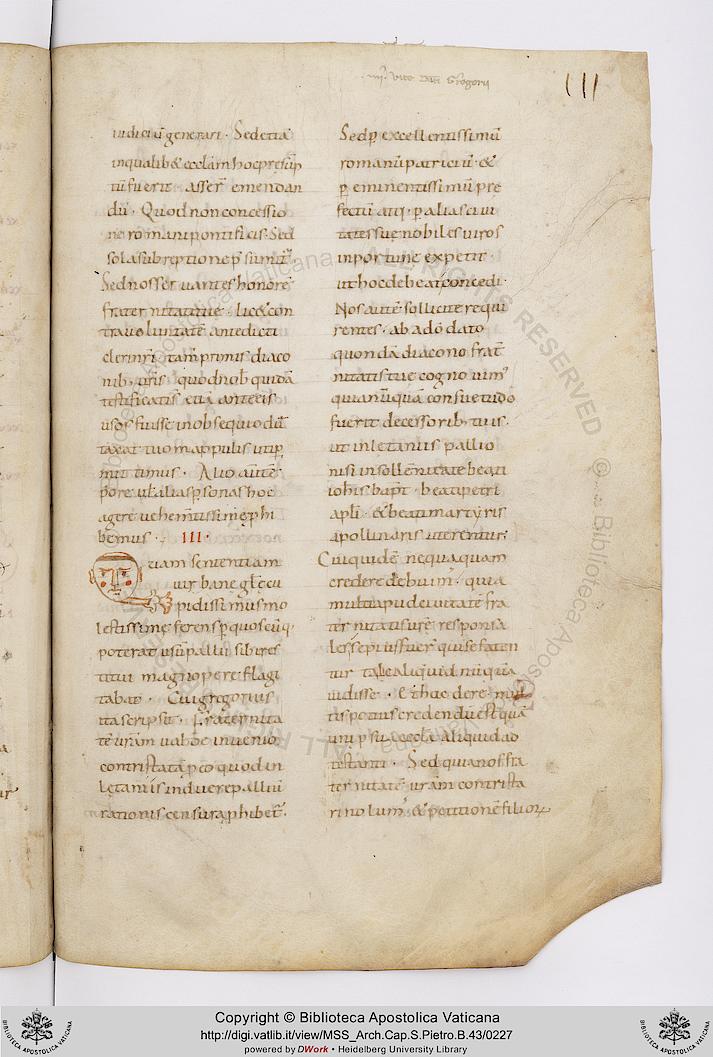 iiij. Vite Beati Gregorii
III
iudiciũ generari. Sed etiã
in qualib& ecclãm hoc pręsũp
tũ fuerit asser̃ emendan
dũ. Quod non concessio
ne romani pontificis. Sed
sola subreptione p̃sumit̃.
Sed nos seruantes honorẽ
fraternitatis tuę. lic& con
tra uoluntatẽ antedicti
cleri nr̃i tam primis diaco
nib; ur̃is quos nob̃ quidã
testificatis etiã ante eis
usos fuisse in obsequio dũ
taxat tuo mappulis uti p̱
mittimus. Alio autẽ tẽ
pore uł alias p̱sonas hoc
agere uehem̃tissimę phi
bemus. III.
uam sententiam
iux bane gl̃ę cu
pidissimus mo
lestissime ferens p̱ quoscũq;
poterat usũ pallii sibi res
titui magnopere flagi
tabat. Cui gregorius
ita scripsit. Fraternita
tẽ ur̃am ualde inuenio
contristatã p̱ eo quod in
lętaniis induere palliũ
rationis censura phibet̃.
Sed p̱ excellentissimũ
romanũ patriciũ &
p̱ eminentissimũ pre
fectũ atq; p̱ alias ciui
tatis suę nobiles uiros
inportune expetit
ut hoc debeat concedi.
Nos autẽ sollicite requi
rentes. ab adõ dato
quondã diacono frat̃
nitatis tuę cognouim;
quia nũquã consuetudo
fuerit decessorib; tuis.
ut in letaniis pallio
nisi in sollẽnitate beati
ioh̃is bapt̃. beati petri
apłi. & beati martyris
apollinaris uterentur;
Cui quidẽ nequaquam
credere debuim;. quia
multi apud ciuitatẽ fra
ternitatis ur̃e responsa
les sępius fuer̃ qui se faten
tur tale aliquid nũquã
uidisse. Et hac de re mul
tis potius credendũ est quã
uni p̱ sua ecclã aliquid ad
testanti. Sed quia nos fra
ternitatẽ ur̃am contrista
ri nolum; & petitionẽ filiorꝝ
Copyright © Biblioteca Apostolica Vaticana
http://digi.vatlib.it/view/MSS_Arch.Cap.S.Pietro.B.43/0227
powered by DWork • Heidelberg University Library